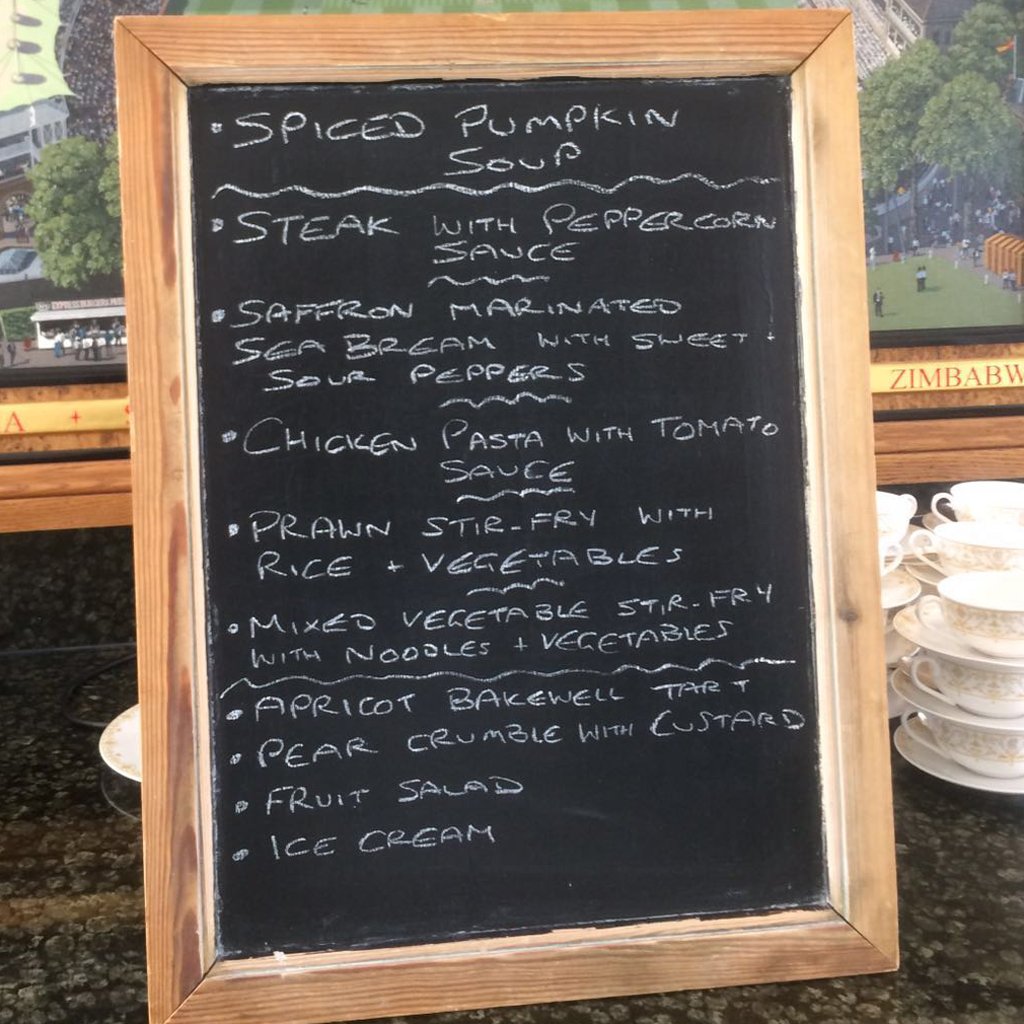 • SPICED PUMPKIN
SOUP
• STEAK WITH PEPPERCORN
SAUCE
• SAFFRON MARINATED
SEA BREAM WITH SWEET +
SOUR PEPPERS
• CHICKEN PASTA WITH TOMATO
SAUCE
• PRAWN STIR-FRY WITH
RICE + VEGETABLES
• MIXED VEGETABLE STIR-FRY
WITH NOODLES + VEGETABLES
• APRICOT BAKEWELL TART
• PEAR CRUMBLE WITH CUSTARD
• FRUIT SALAD
• ICE CREAM
A +
ZIMBABW